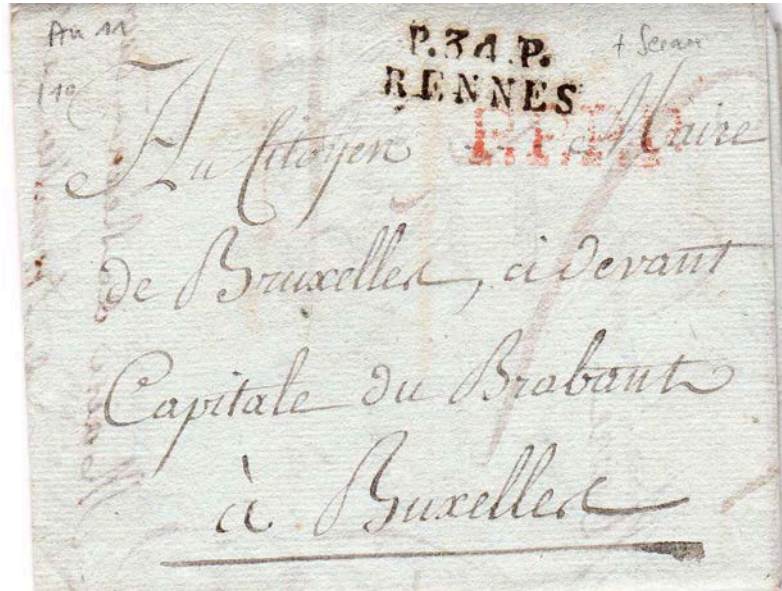 An 11
P.34.P.
RENNES
P.P.P.P.
Au Citoyen Maire
de Bruxelles, ci devant
Capitale du Brabant
à Buxelles